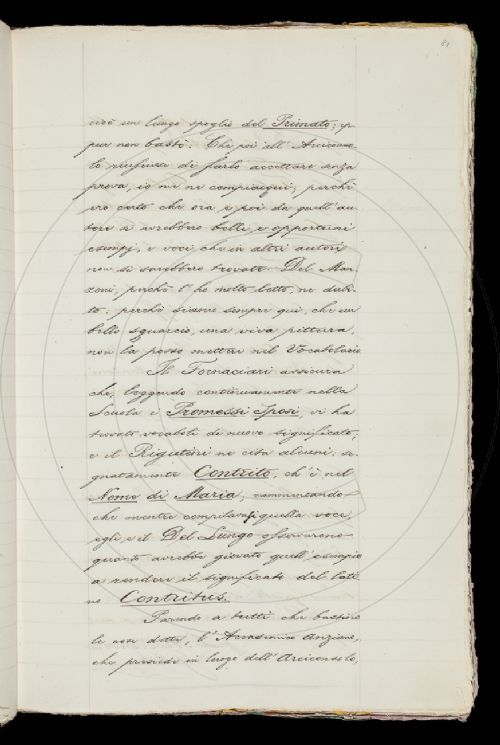 81
cioè un lungo spoglio del Primato; e
pur non bastò. Che poi all' Arciconso
lo riuscisse di farlo accettare senza
prova, io me ne compiacqui, perchè
ero certo che ora e poi da quell' au
tore si avrebbero belli e opportuni
esempj, e voci che in altri autori
non si sarebbero trovate. Del Man
zoni, perchè l' ho molto letto, ne dubi
to: perchè siamo sempre qui, che un
bello squarcio, una viva pittura,
non la posso mettere nel Vocabolario
Il Fornaciari assicura
che, leggendo continuamente nella
Scuola i Promessi Sposi, vi ha
trovato vocaboli di nuovo significato;
e il Rigutini ne cita alcuni, se
gnatamente Contrito, ch' è nel
Nome di Maria, rammentando
che mentre compilavasi quella voce
egli e il Del Lungo osservarono
quanto avrebbe giovato quell' esempio
a rendere il significato del lati
no Contritus.
Parendo a tutti che bastino
le cose dette, l' Accademico Anziano,
che presiede in luogo dell' Arciconsolo,